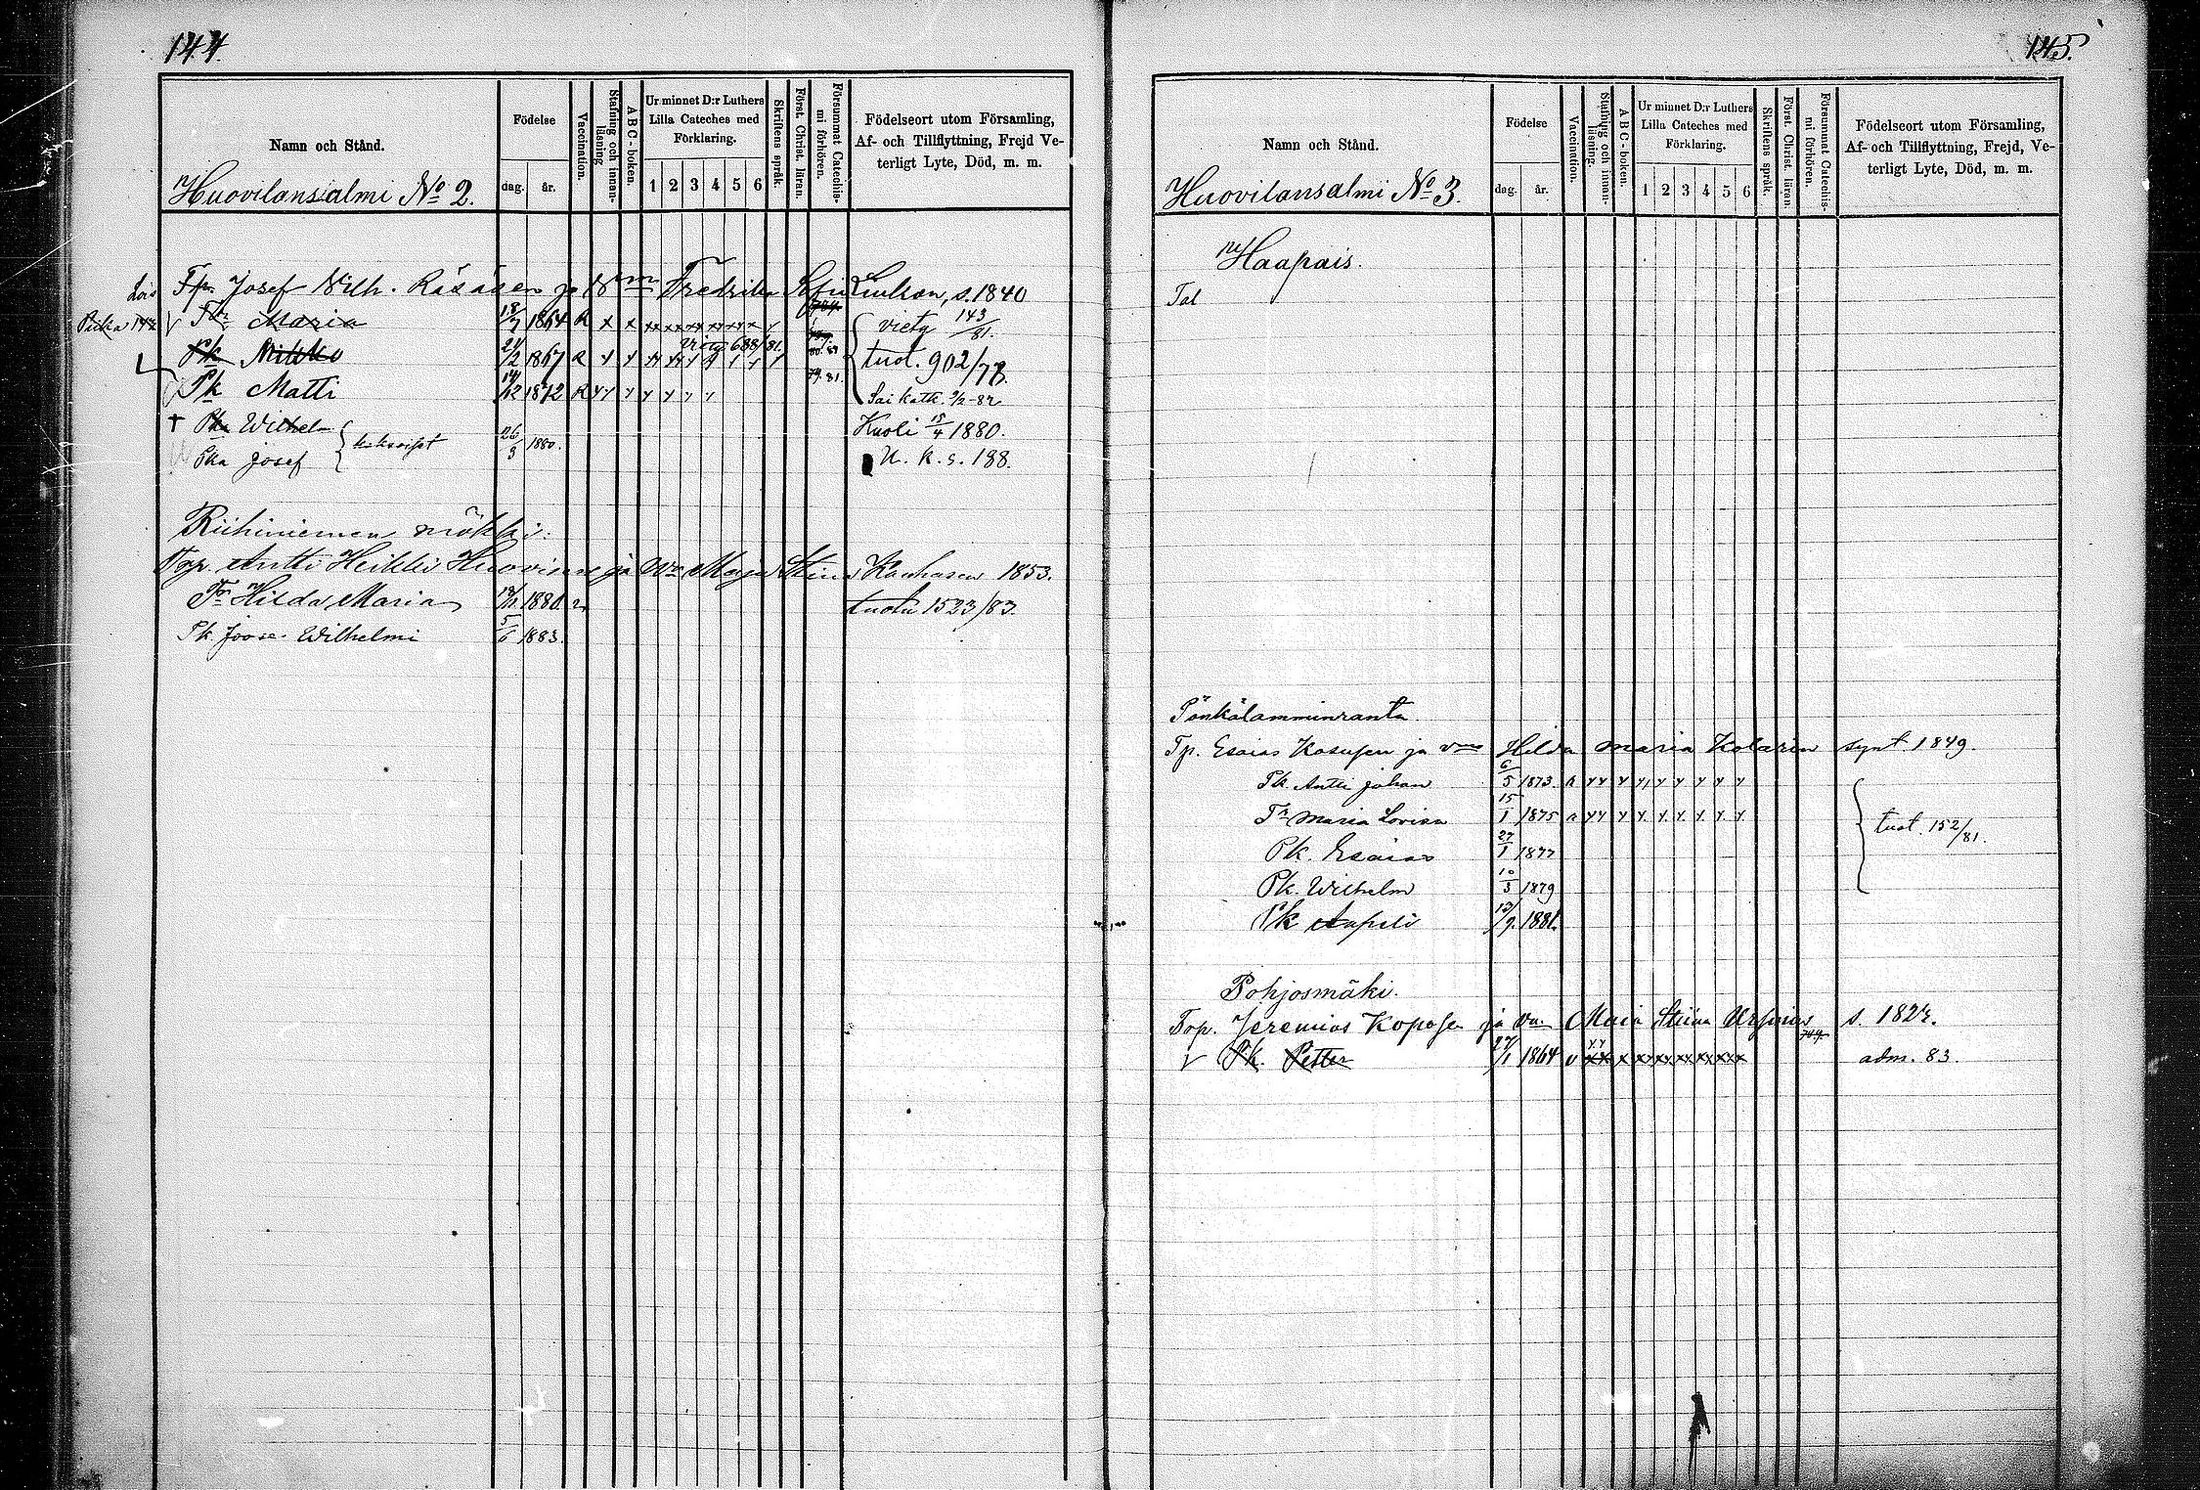 144.
Namn och Stånd.
Födelse
dag. år.
Vaccination.
Stafning och innanläsning
A B C-boken.
Ur minnet D:r Luthers Lilla Cateches med Förklaring.
1 2 3 4 5 6
Skriftens språk.
Först. Christ. läran.
Försummat Catechismi förhören.
Födelseort utom Församling, Af- och Tillflyttning, Frejd Veterligt Lyte, Död, m. m.
Huovilansalmi No 2.
Tp. Josef Wilh. Räsäsen ja Vmn Fredrika Sofia s. 1840
Tr Maria 18/7 1864 R x x viety 143/81.
Pk Mikko 24/2 1867 R tuot. 902/78.
viety 688/81.
Pk Matti 14/12 1872 R
79. 81.
Pka Wilhelm
Kuoli 15/4 1880.
Pka Josef kaksoiset 26/3 1880.
U. k. s. 188.
Riihiniemen mökki.
Top. Antti Heikki Huovinen ja Vo Maja Stina Kauhasen 1853.
Tr Hilda Maria 1880. tuotu 1523/83.
Pk. Joose Wilhelmi 5/6 1883.
145.
Namn och Stånd.
Födelse
dag. år.
Vaccination.
Stafning och innanläsning.
A B C-boken.
Ur minnet D:r Luthers Lilla Cateches med Förklaring.
1 2 3 4 5 6
Skriftens språk.
Först. Christ. läran.
Försummat Catechismi förhören.
Födelseort utom Församling, Af- och Tillflyttning, Frejd, Veterligt Lyte, Död, m. m.
Huovilansalmi No 3.
Haapais.
Tal
Pönkälamminranta.
Tp. Esaias Kosusen ja vmo Hilda Maria Kolarin synt 1849.
Pk. Antti Johan 6/5 1873.
Tr Maria Lovisa 15/1 1875
tuot. 152/81.
Pk. Esaias 27/1 1877
Pk. Wilhelm 10/3 1879
Pk Aapeli 12/9. 1881.
Pohjosmäki.
Top. Jeremias Koposen ja Vn Maia Stiina s. 1824.
Pk. Petter 27/1 1864 adm. 83.